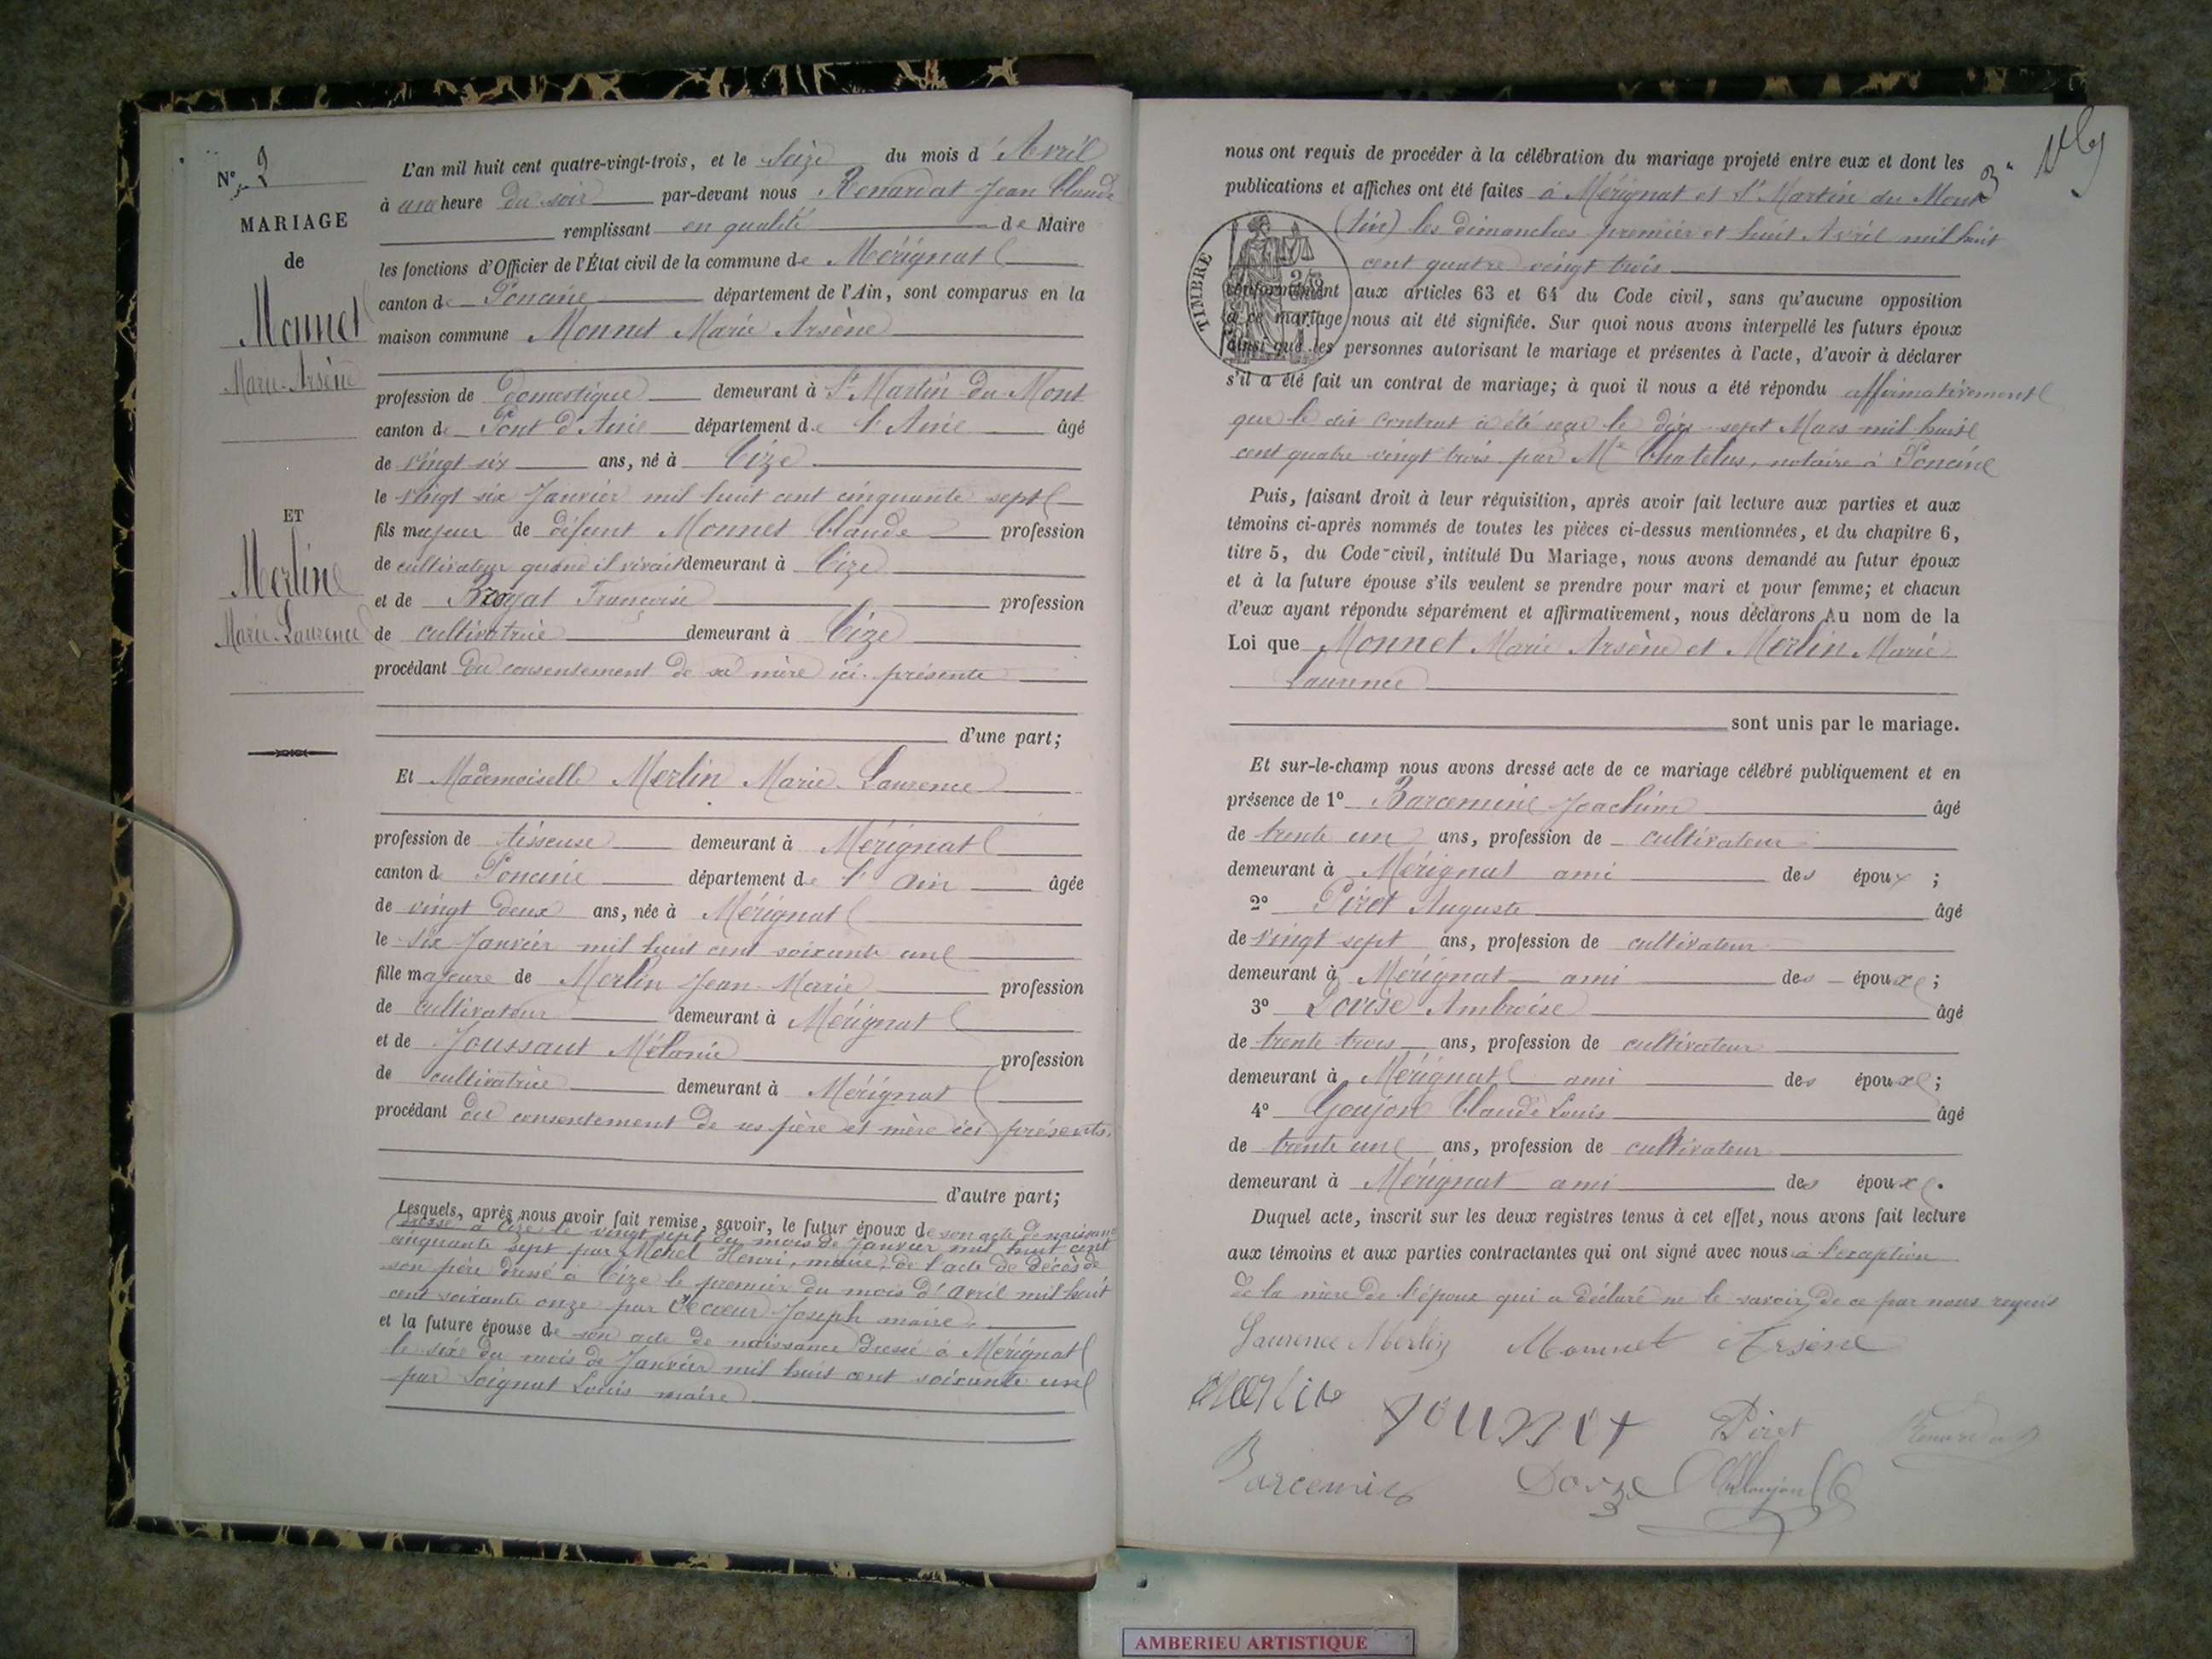 N° 2
MARIAGE
de
Monnet
Marie-Arsène
ET
Merlin
Marie-Laurence
L'an mil huit cent quatre-vingt-trois, et le Seize du mois d'Avril
à une heure du soir par-devant nous Renardat Jean Claude
remplissant en qualité de Maire
les fonctions d'Officier de l'État civil de la commune de Mérignat
canton de Poncin département de l'Ain, sont comparus en la
maison commune Monnet Marie Arsène
profession de domestique demeurant à St Martin-du-Mont
canton de Pont d'Ain département de l'Ain âgé
de vingt six ans, né à Cize
le vingt six Janvier mil huit cent cinquante sept
fils majeur de défunt Monnet Claude profession
de cultivateur quand il vivait demeurant à Cize
et de Françoise profession
de cultivatrice demeurant à Cize
procédant du consentement de sa mère ici présente
d'une part;
Et Mademoiselle Merlin Marie-Laurence
profession de tisseuse demeurant à Mérignat
canton de Poncin département de l'Ain âgée
de vingt deux ans, née à Mérignat
le six Janvier mil huit cent soixante un
fille majeure de Merlin Jean-Marie profession
de cultivateur demeurant à Mérignat
et de Joussaut Mélanie profession
de cultivatrice demeurant à Mérignat
procédant du consentement de ses père et mère ici présents.
d'autre part;
Lesquels, après nous avoir fait remise, savoir, le futur époux de son acte de naissance
dressé à Cize le vingt sept du mois de Janvier mil huit cent
cinquante sept par Henri, maire, de l'acte de décès de
son père dressé à Cize le premier du mois d'avril mil huit
cent soixante onze par Joseph maire.
et la future épouse de son acte de naissance dressé à Mérignat
le six du mois de Janvier mil huit cent soixante un
par Soignat Louis maire
3 "
nous ont requis de procéder à la célébration du mariage projeté entre eux et dont les
publications et affiches ont été faites à Mérignat et St Martin du Mont
les dimanches premier et huit Avril mil huit
cent quatre vingt trois
TIMBRE
conformément aux articles 63 et 64 du Code civil, sans qu'aucune opposition
à ce mariage nous ait été signifiée. Sur quoi nous avons interpellé les futurs époux
ainsi que les personnes autorisant le mariage et présentes à l'acte, d'avoir à déclarer
s'il a été fait un contrat de mariage; à quoi il nous a été répondu affirmativement
que le dit contrat a été reçu le dix-sept Mars mil huit
cent quatre vingt trois par Me Chatelus, notaire à Poncin
Puis, faisant droit à leur réquisition, après avoir fait lecture aux parties et aux
témoins ci-après nommés de toutes les pièces ci-dessus mentionnées, et du chapitre 6,
titre 5, du Code civil, intitulé Du Mariage, nous avons demandé au futur époux
et à la future épouse s'ils veulent se prendre pour mari et pour femme; et chacun
d'eux ayant répondu séparément et affirmativement, nous déclarons Au nom de la
Loi que Monnet Marie Arsène et Merlin Marie
Laurence
sont unis par le mariage.
Et sur-le-champ nous avons dressé acte de ce mariage célébré publiquement et en
présence de 1° Joachim âgé
de trente un ans, profession de cultivateur
demeurant à Mérignat ami des époux ;
2° Piret Auguste âgé
de vingt sept ans, profession de cultivateur
demeurant à Mérignat ami des époux ;
3° Ambroise âgé
de trente trois ans, profession de cultivateur
demeurant à Mérignat ami des époux ;
4° Goujon Claude Louis âgé
de trente un ans, profession de cultivateur
demeurant à Mérignat ami des époux.
Duquel acte, inscrit sur les deux registres tenus à cet effet, nous avons fait lecture
aux témoins et aux parties contractantes qui ont signé avec nous à l'exception
de la mère de l'époux qui a déclaré ne le savoir, de ce par nous requis
Laurence Merlin Monnet Arsène
Merlin
Piret
AMBERIEU ARTISTIQUE